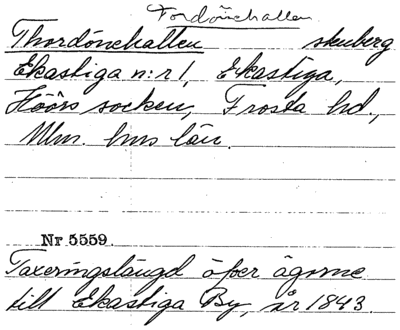 Tordönehallen
Thordönehallen skuberg
Ekastiga n:r 1, Ekastiga,
Höörs socken, Frosta hd.,
Mlm. hus län.
Nr 5559.
Taxeringslängd öfver ägorne
till Ekastiga By, år 1843.